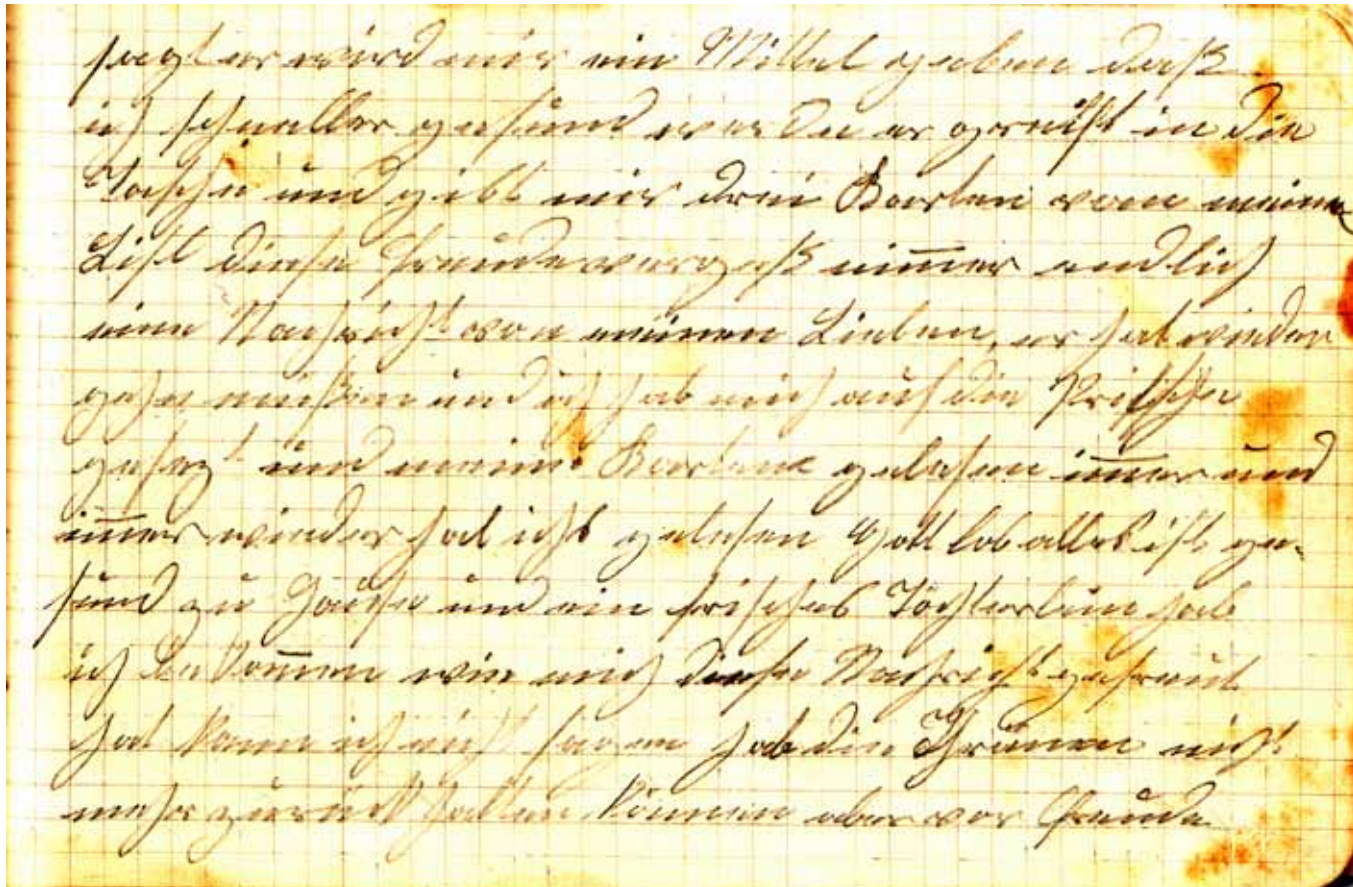 sagt er wird mir ein Mittel geben daß
ich schneller gesund werde er greift in die
Tasche und gibt mir drei Karten von meine
List diese Freude vergeß nimmer endlich
eine Nachricht von meinen Lieben, er hat wieder
gehn müßen und ich hab mich auf die Pritsche
gesezt und meine Karten gelesen immer und
immer wieder hab ichs gelesen Gott lob alles ist ge-
sund zu Hause und ein frisches Töchterlein hab
ich bekommen wie mich diese Nachricht gefreut
hat kann ich nicht sagen hab die Thränen nicht
mehr zurückhalten können aber vor Freude